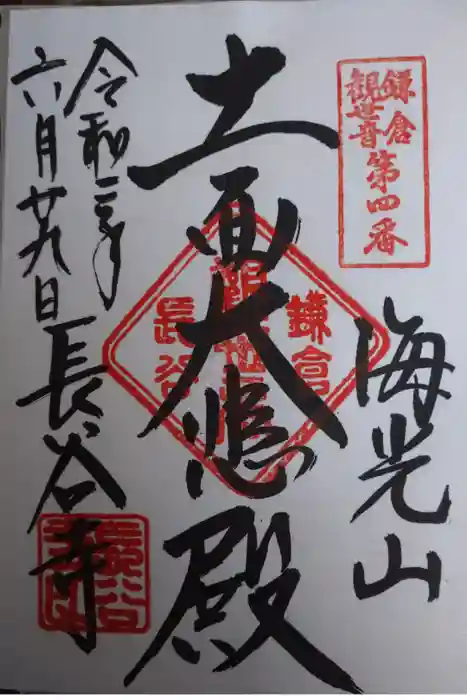 鎌倉
觀世音
第四番
海光山
十一面大悲殿
鎌倉
長谷
令和三年
六月廿九日
長谷寺